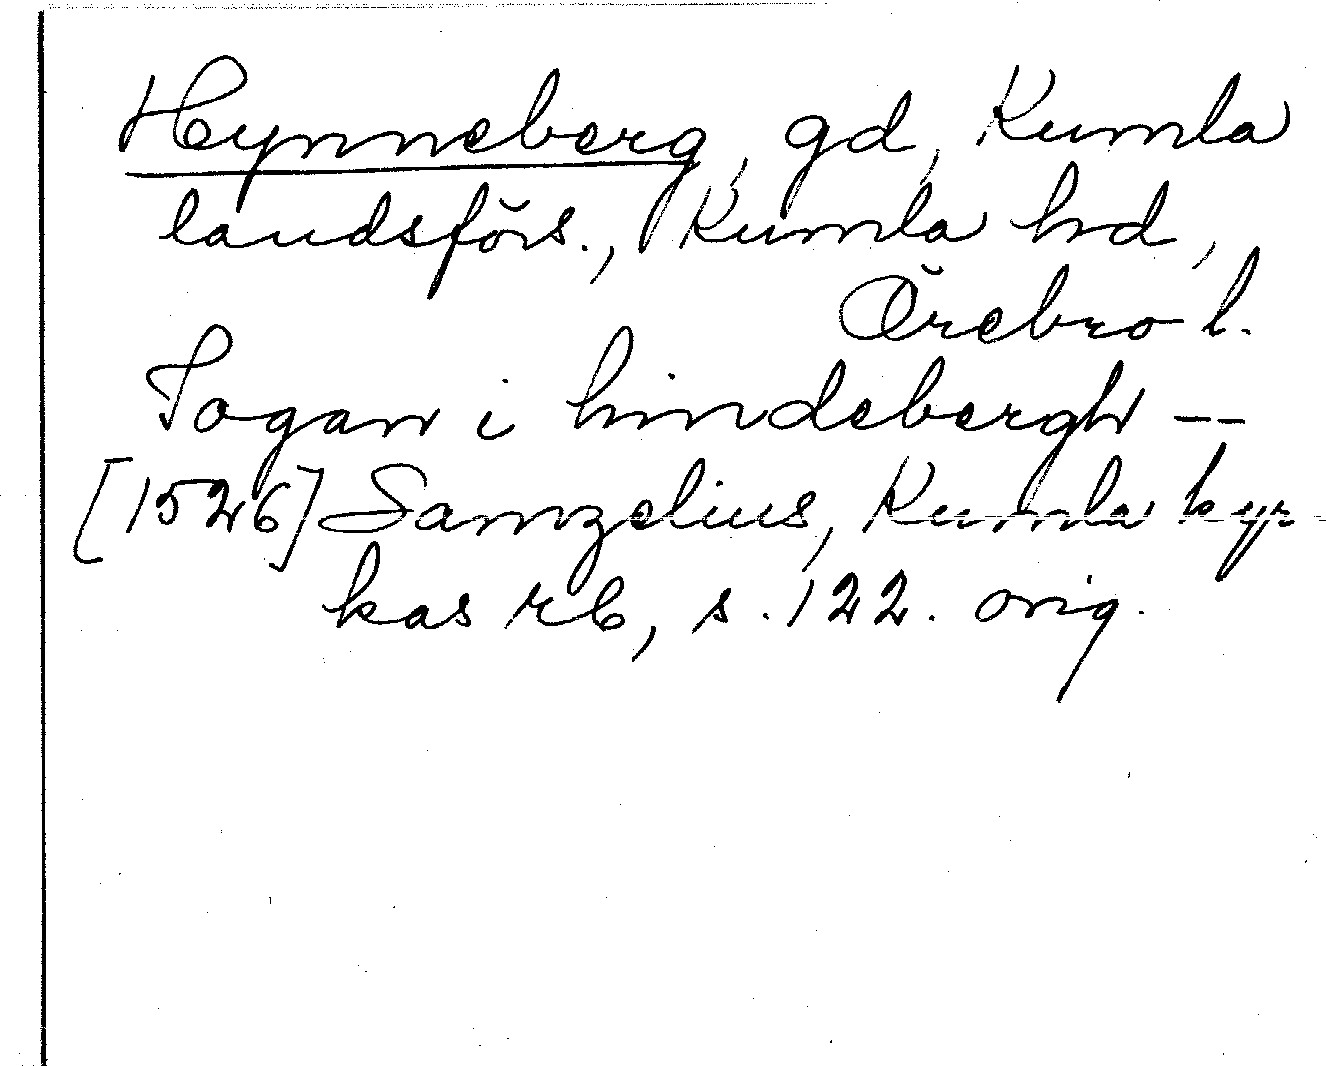 Hynneberg, gd, Kumla
landsförs., Kumla hd,
Örebro l.
Togan i hindebergh --
[1526] Samzelius, Kumla kyr
kas rb, s. 122. orig.